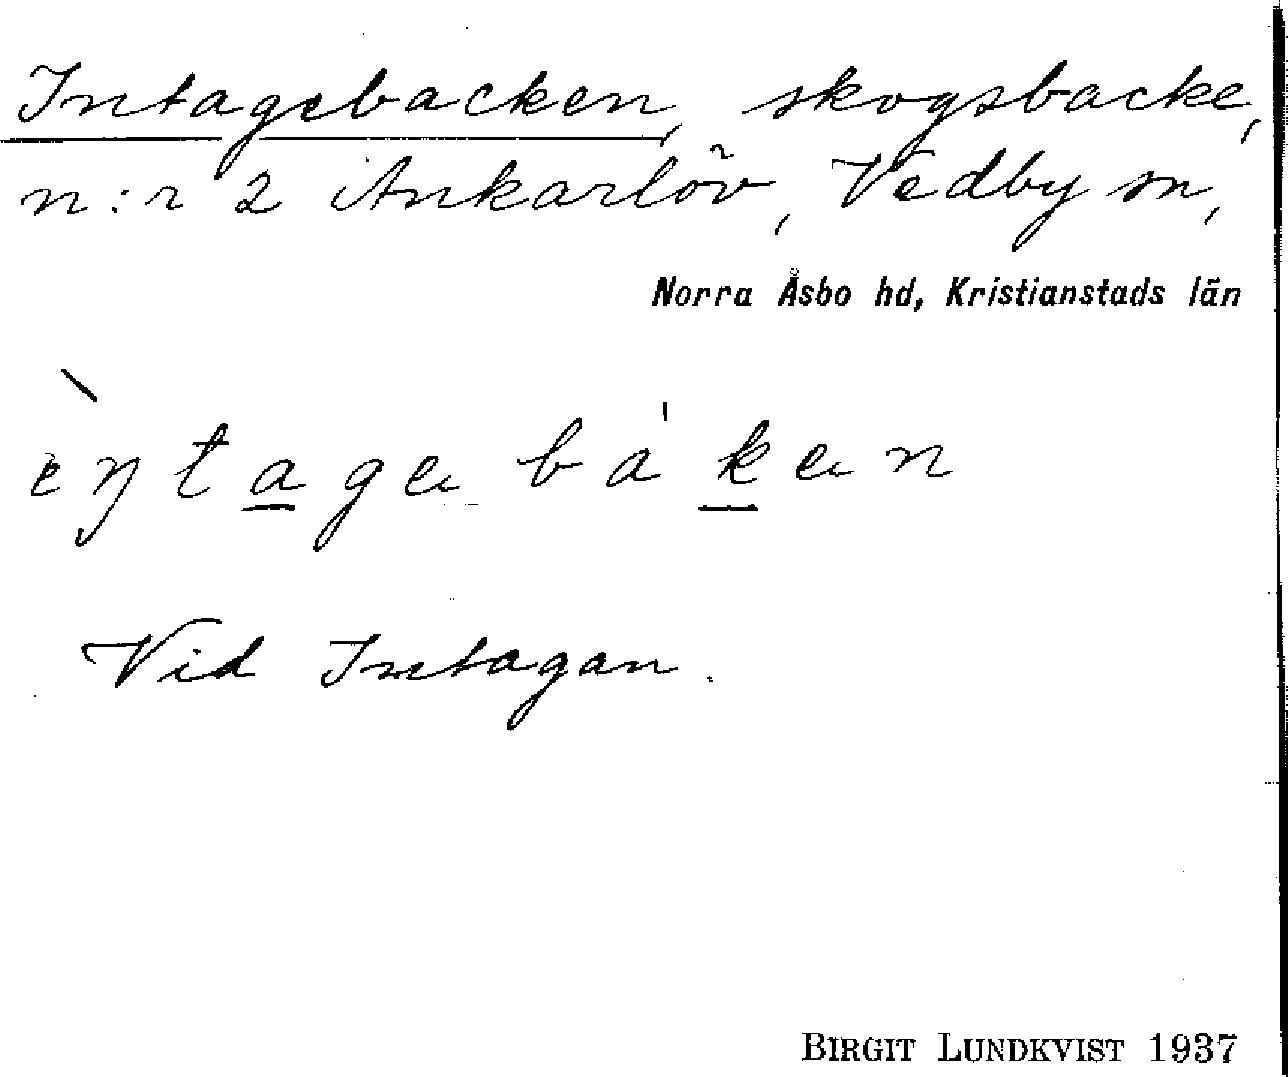 Intagebacken, skogsbacke,
n:r 2 Ankarlöv, Vedby sn,
Norra Åsbo hd, Kristianstads län
èŋtagebáken
Vid Intagan.
BIRGIT LUNDKVIST 1937